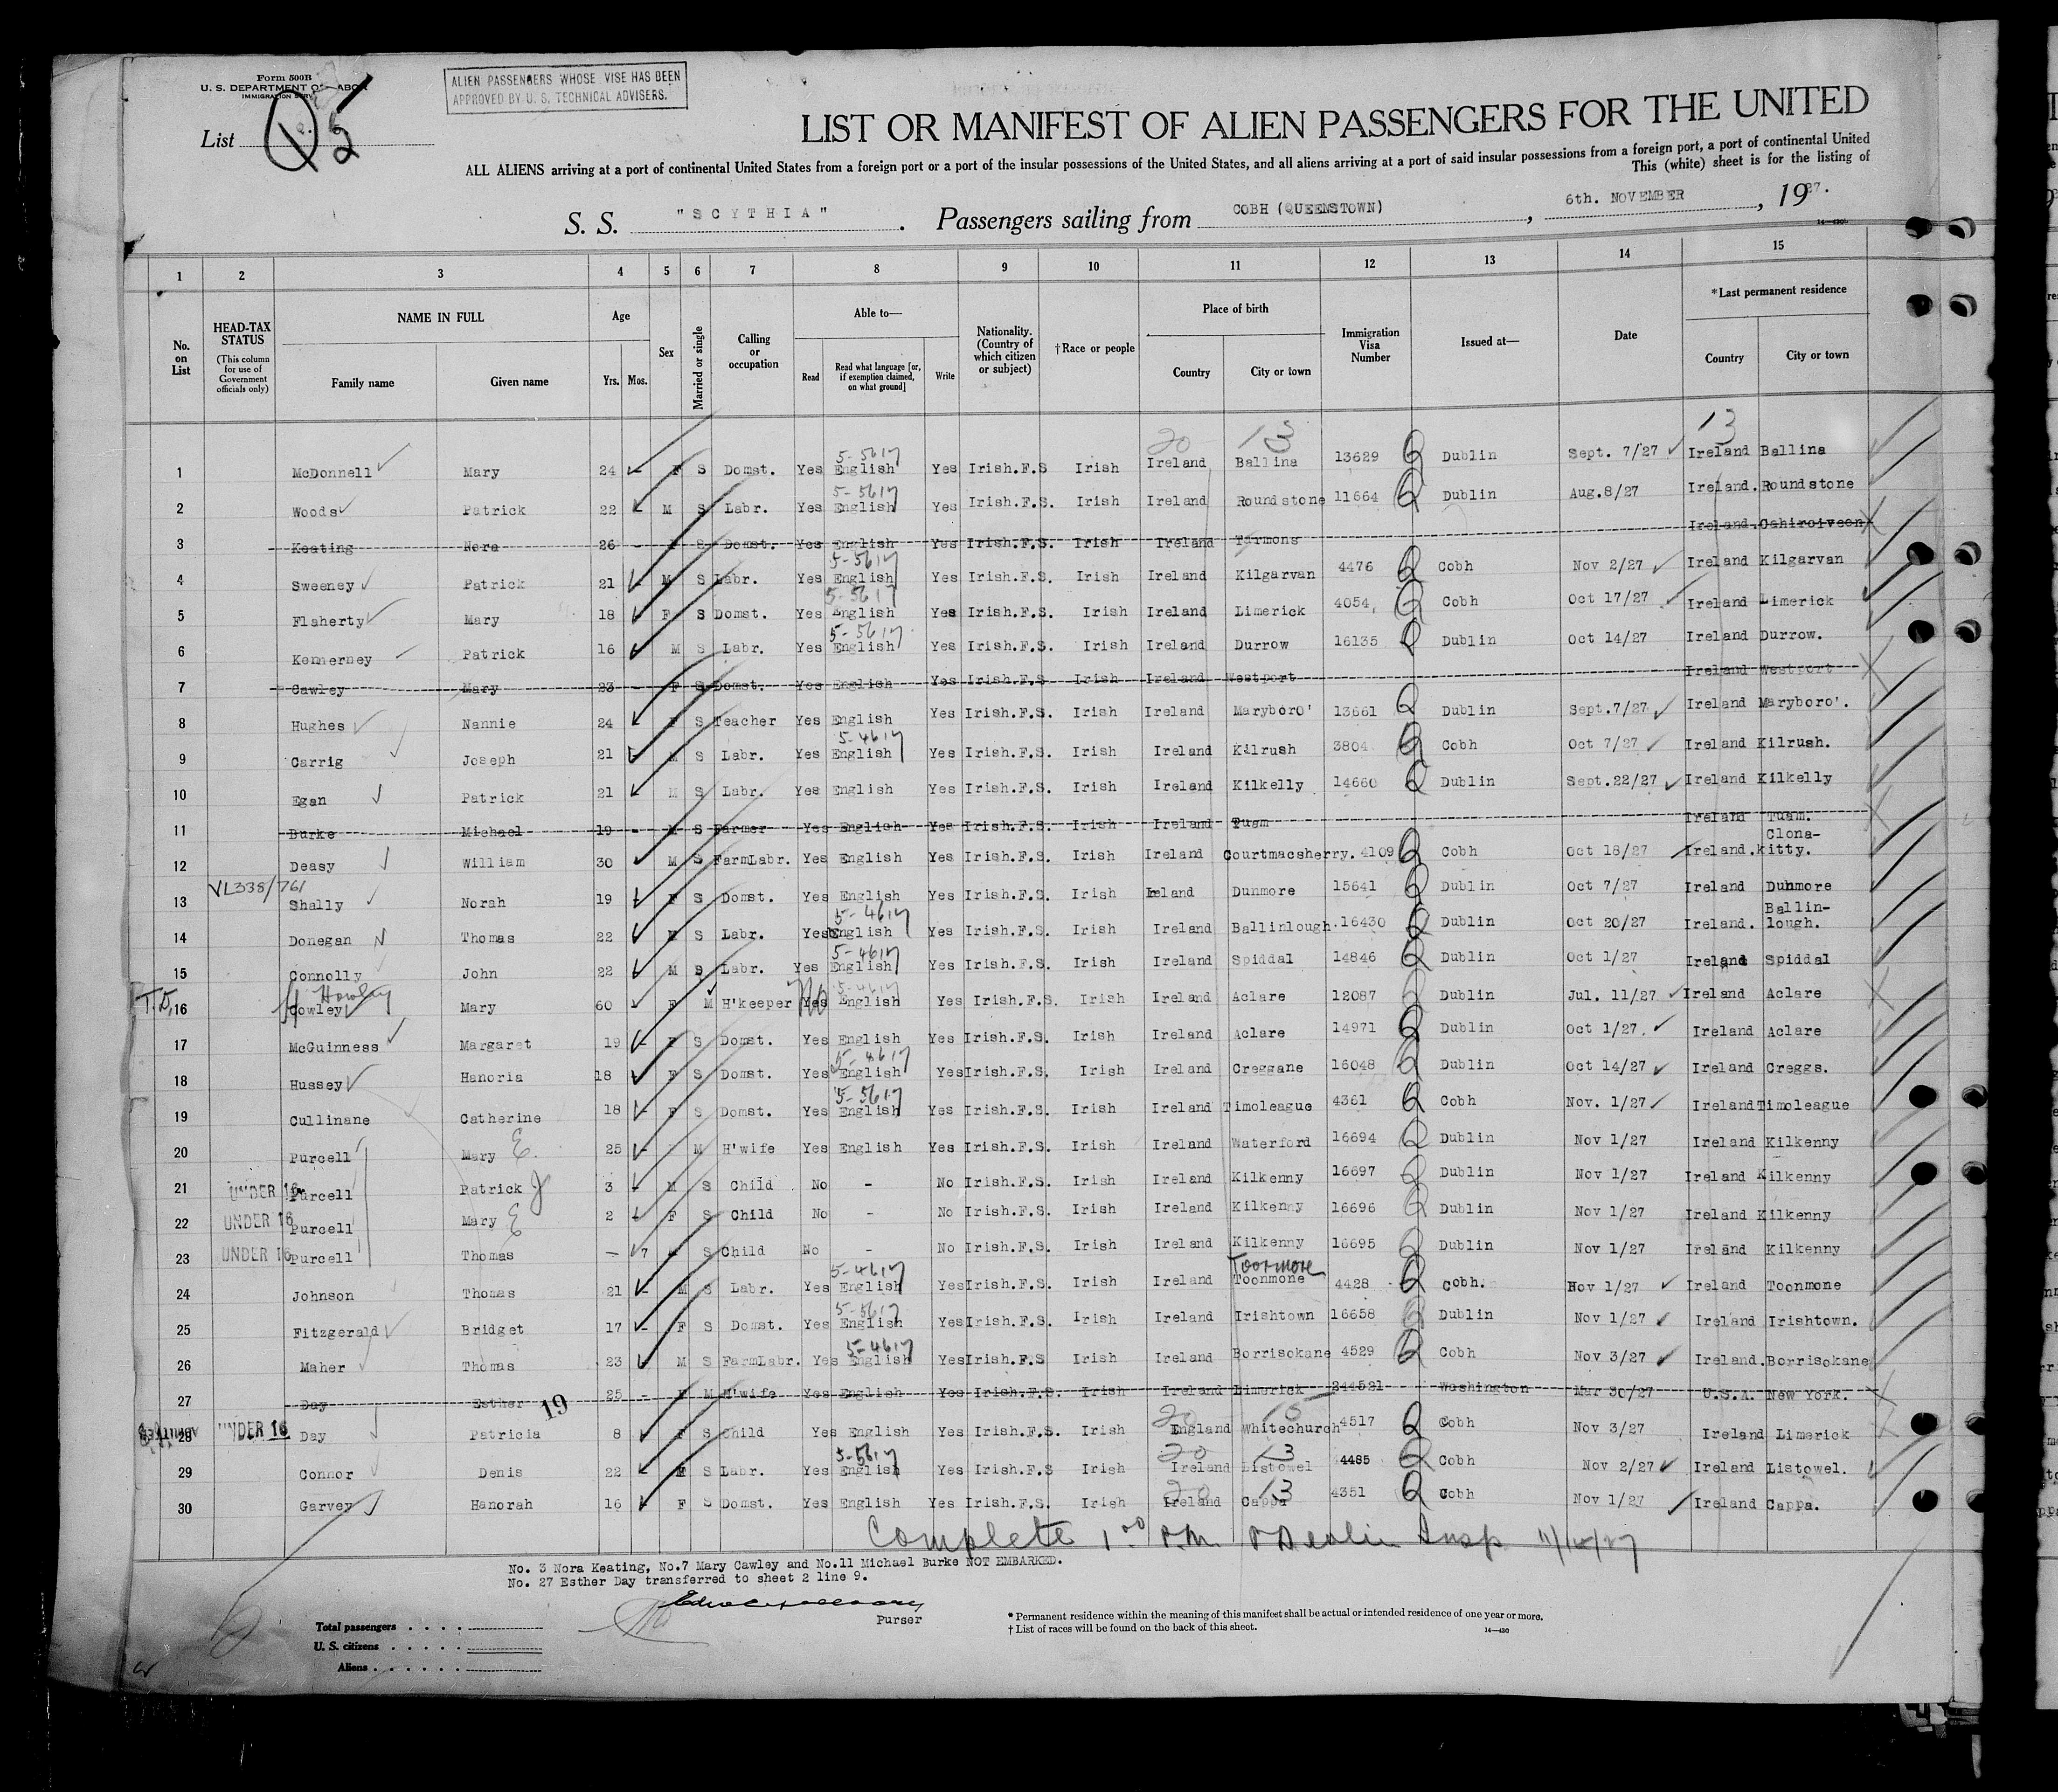 Form 500B
U. S. DEPARTMENT OF LABOR
IMMIGRATION SERV
List 5
ALIEN PASSENGERS WHOSE VISE HAS BEEN
APPROVED BY U. S. TECHNICAL ADVISERS.
LIST OR MANIFEST OF ALIEN PASSENGERS FOR THE UNITED
ALL ALIENS arriving at a port of continental United States from a foreign port or a port of the insular possessions of the United States, and all aliens arriving at a port of said insular possessions from a foreign port, a port of continental United
This (white) sheet is for the listing of
S. S. "SCYTHIA". Passengers sailing from COBH (QUEENSTOWN), 6th. NOVEMBER, 1927.
14—430
1 2 3 4 5 6 7 8 9 10 11 12 13 14 15
No. on List
HEAD-TAX STATUS (This column for use of Government officials only)
NAME IN FULL Family name Given name
Age Yrs. Mos.
Sex
Married or single
Calling or occupation
Able to— Read Read what language [or, if exemption claimed, on what ground] Write
Nationality. (Country of which citizen or subject)
†Race or people
Place of birth Country City or town
Immigration Visa Number
Issued at—
Date
*Last permanent residence Country City or town
20 13 13
1 McDonnell Mary 24 - F S Domst. Yes English 5-5617 Yes Irish.F.S Irish Ireland Ballina 13629 Dublin Sept. 7/27 Ireland Ballina
2 Woods Patrick 22 M S Labr. Yes English 5-5617 Yes Irish.F.S. Irish Ireland Roundstone 11664 Dublin Aug.8/27 Ireland. Roundstone
3 Keating Nora 26 - F S Domst. Yes English Yes Irish.F.S. Irish Ireland Tarmons Ireland. Cahirciveen
4 Sweeney Patrick 21 - M S Labr. Yes English 5-5617 Yes Irish.F.S. Irish Ireland Kilgarvan 4476 Cobh Nov 2/27 Ireland Kilgarvan
5 Flaherty Mary 18 - F S Domst. Yes English 5-5617 Yes Irish.F.S. Irish Ireland Limerick 4054 Cobh Oct 17/27 Ireland Limerick
6 Kennerney Patrick 16 M S Labr. Yes English 5-5617 Yes Irish.F.S. Irish Ireland Durrow 16135 Dublin Oct 14/27 Ireland Durrow.
7 Cawley Mary 23 - F S Domst. Yes English Yes Irish.F.S Irish Ireland Westport Ireland Westport
8 Hughes Nannie 24 F S Teacher Yes English Yes Irish.F.S. Irish Ireland Maryboro' 13661 Dublin Sept.7/27 Ireland Maryboro'.
9 Carrig Joseph 21 - M S Labr. Yes English 5-4617 Yes Irish.F.S. Irish Ireland Kilrush 3804 Cobh Oct 7/27 Ireland Kilrush.
10 Egan Patrick 21 M S Labr. Yes English Yes Irish.F.S. Irish Ireland Kilkelly 14660 Dublin Sept.22/27 Ireland Kilkelly
11 Burke Michael 19 - M S Farmer Yes English Yes Irish.F.S. Irish Ireland Tuam Ireland Tuam.
12 Deasy William 30 M S FarmLabr. Yes English Yes Irish.F.S. Irish Ireland Courtmacsherry. 4109 Cobh Oct 18/27 Ireland. Clona-kitty.
VL338/761
13 Shally Norah 19 F S Domst. Yes English Yes Irish.F.S. Irish Ireland Dunmore 15641 Dublin Oct 7/27 Ireland Dunmore
14 Donegan Thomas 22 M S Labr. Yes English 5-4617 Yes Irish.F.S. Irish Ireland Ballinlough. 16430 Dublin Oct 20/27 Ireland. Ballin-lough.
15 Connolly John 22 M S Labr. Yes English 5-4617 Yes Irish.F.S. Irish Ireland Spiddal 14846 Dublin Oct 1/27 Ireland Spiddal
16 Cowley Howley Mary 60 F M H'keeper Yes No English 5-4617 Yes Irish.F.S. Irish Ireland Aclare 12087 Dublin Jul. 11/27 Ireland Aclare
17 McGuinness Margaret 19 - F S Domst. Yes English Yes Irish.F.S. Irish Ireland Aclare 14971 Dublin Oct 1/27. Ireland Aclare
18 Hussey Hanoria 18 F S Domst. Yes English 5-4617 Yes Irish.F.S. Irish Ireland Creggane 16048 Dublin Oct 14/27 Ireland Creggs.
19 Cullinane Catherine 18 - F S Domst. Yes English 5-5617 Yes Irish.F.S. Irish Ireland Timoleague 4361 Cobh Nov. 1/27 Ireland Timoleague
20 Purcell Mary E. 25 - M H'wife Yes English Yes Irish.F.S. Irish Ireland Waterford 16694 Dublin Nov 1/27 Ireland Kilkenny
21 UNDER 16 Purcell Patrick J 3 - M S Child No - No Irish.F.S. Irish Ireland Kilkenny 16697 Dublin Nov 1/27 Ireland Kilkenny
22 UNDER 16 Purcell Mary E 2 - F S Child No - No Irish.F.S. Irish Ireland Kilkenny 16696 Dublin Nov 1/27 Ireland Kilkenny
23 UNDER 16 Purcell Thomas — 7 S Child No - No Irish.F.S. Irish Ireland Kilkenny 16695 Dublin Nov 1/27 Ireland Kilkenny
24 Johnson Thomas 21 - M S Labr. Yes English 5-4617 Yes Irish.F.S. Irish Ireland Toonmone Toormore 4428 Cobh. Nov 1/27 Ireland Toonmone
25 Fitzgerald Bridget 17 - F S Domst. Yes English 5-5617 Yes Irish.F.S. Irish Ireland Irishtown 16658 Dublin Nov 1/27 Ireland Irishtown.
26 Maher Thomas 23 M S FarmLabr. Yes English 5-4617 Yes Irish.F.S Irish Ireland Borrisokane 4529 Cobh Nov 3/27 Ireland. Borrisokane
27 Day Esther 19 25 - F M H'wife Yes English Yes Irish.F.S. Irish Ireland Limerick 244521 Washington Mar 30/27 U.S.A. New York.
28 UNDER 16 Day Patricia 8 F S Child Yes English Yes Irish.F.S. Irish England Whitechurch 4517 Cobh Nov 3/27 Ireland Limerick
29 Connor Denis 22 M S Labr. Yes English 5-5617 Yes Irish.F.S Irish 20 Ireland 13 Listowel 4485 Cobh Nov 2/27 Ireland Listowel.
30 Garvey Hanorah 16 F S Domst. Yes English Yes Irish.F.S. Irish 20 Ireland 13 Cappa 4351 Cobh Nov 1/27 Ireland Cappa.
Complete 1 P.M. Insp
No. 3 Nora Keating, No.7 Mary Cawley and No.11 Michael Burke NOT EMBARKED.
No. 27 Esther Day transferred to sheet 2 line 9.
Purser
Total passengers
U. S. citizens
Aliens
* Permanent residence within the meaning of this manifest shall be actual or intended residence of one year or more.
† List of races will be found on the back of this sheet.
14—430